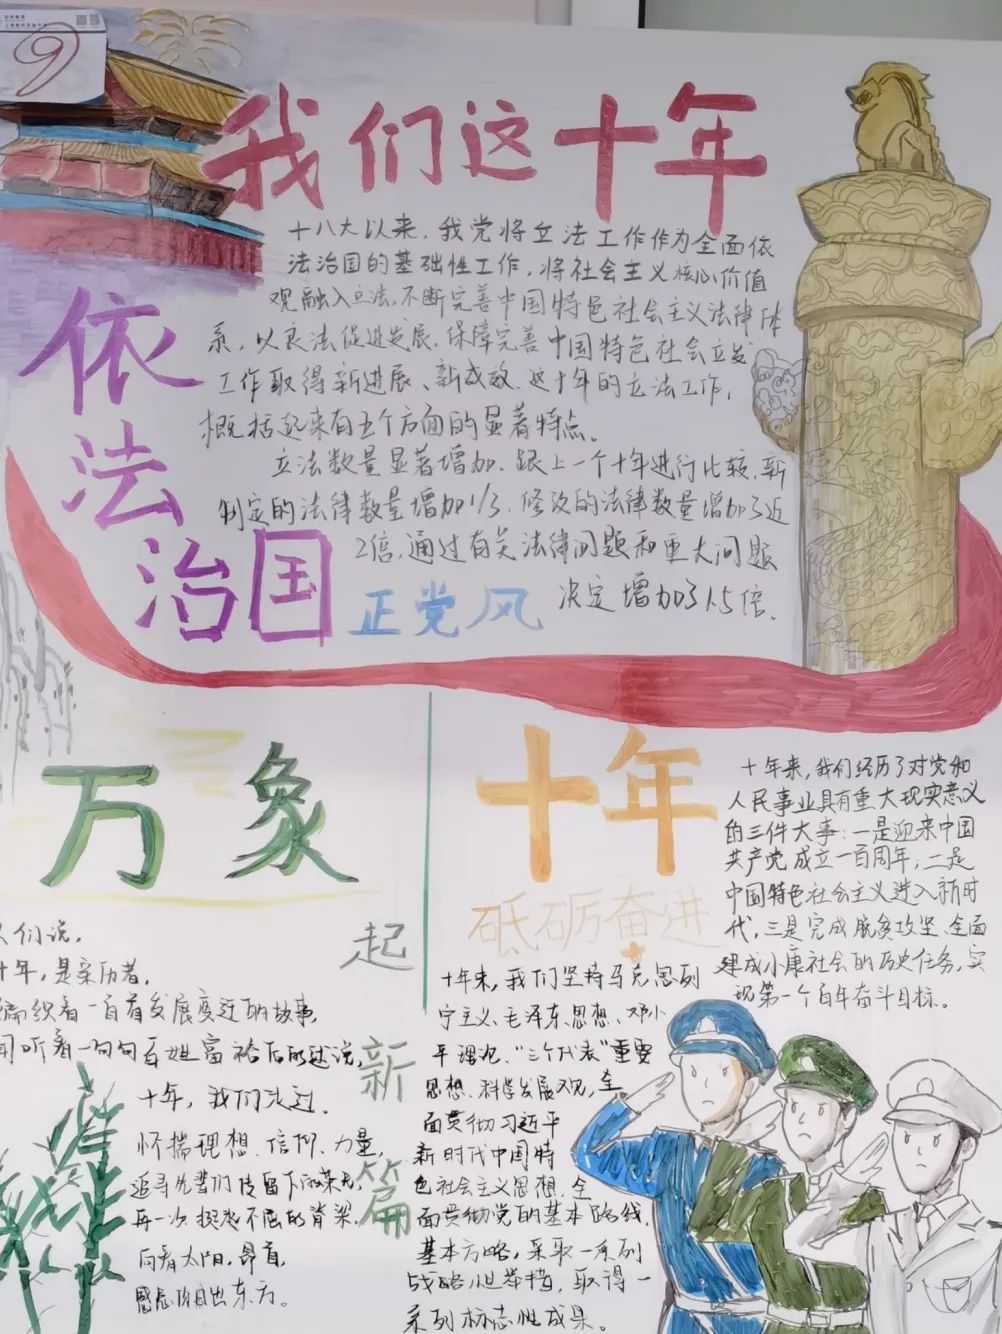 我们这十年
十八大以来,我党将立法工作作为全面依
法治国的基础性工作,将社会主义核心价值
观融入立法,不断完善中国特色社会主义法律体
系,以良法促进发展,保障完善中国特色社会立发
工作取得新进展、新成效.这十年的立法工作,
概括起来有五个方面的显著特点。
立法数量显著增加.跟上一个十年进行比较,新
制定的法律数量增加1/3,修改的法律数量增加了近
2倍,通过有关法律问题和重大问题
决定增加了1.5倍.
依法治国
正党风
万象
起新篇
人们说,
十年,是亲历者,
编织着一首首发展变迁的故事,
听着一句句百姓富裕后的述说,
十年,我们走过.
怀揣理想、信仰、力量,
追寻先辈们传留下的荣光,
再一次挺起不屈的脊梁,
向着太阳,昂首,
感知日出东方。
十年
砥砺奋进
十年来,我们坚持马克思列
宁主义、毛泽东思想、邓小
平理论、"三个代表"重要
思想、科学发展观,全
面贯彻习近平
新时代中国特
色社会主义思想,全
面贯彻党的基本路线,
基本方略,采取一系列
战略性举措,取得一
系列标志性成果。
十年来,我们经历了对党和
人民事业具有重大现实意义
的三件大事:一是迎来中国
共产党成立一百周年;二是
中国特色社会主义进入新时
代,三是完成脱贫攻坚、全面
建成小康社会的历史任务,实
现第一个百年奋斗目标。